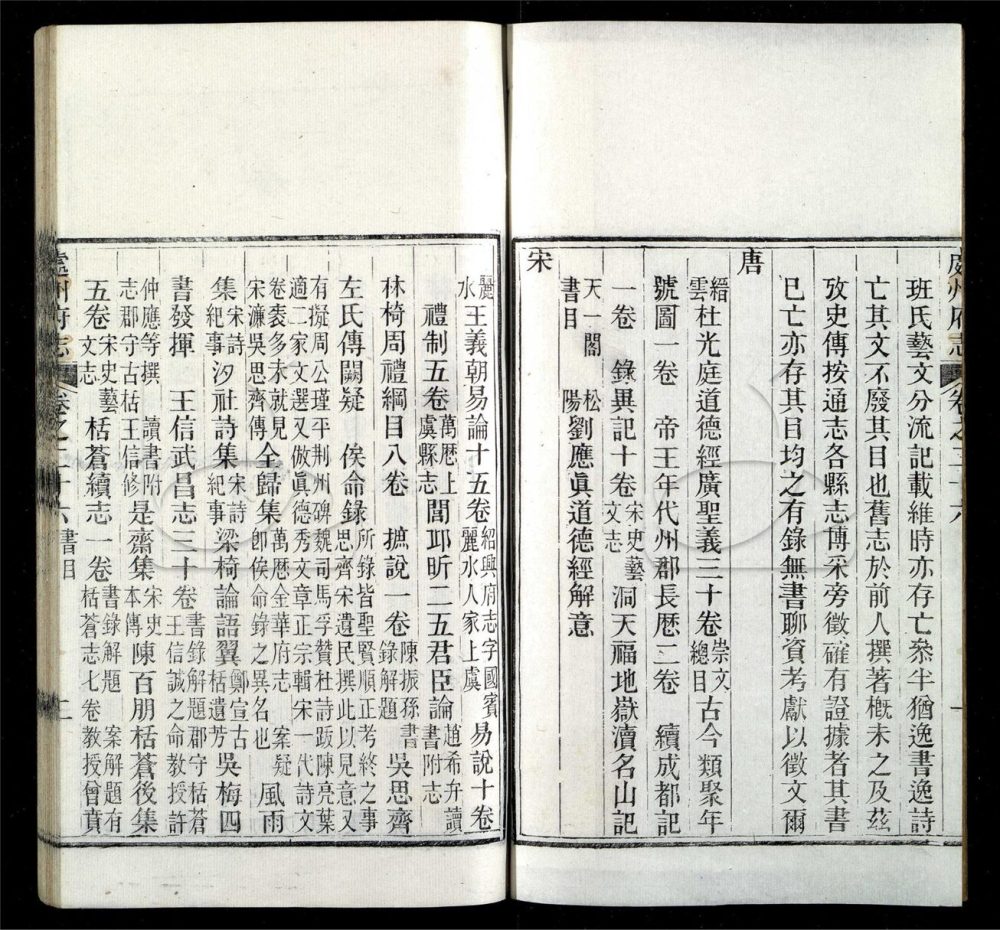 處州府志 卷之二十六 一
班氏藝文分流記載維時亦存亡叅半猶逸書逸詩
亡其文不廢其目也舊志於前人撰著槪未之及茲
攷史傳按通志各縣志博采旁徵確有證據者其書
已亡亦存其目均之有錄無書聊資考獻以徵文爾
唐
縉雲杜光庭道德經廣聖義三十卷崇文總目古今類聚年
號圖一卷 帝王年代州郡長厯二卷 續成都記
一卷 錄異記十卷宋史藝文志 洞天福地嶽瀆名山記
天一閣書目 松陽劉應眞道德經解意
宋
麗水王義朝易論十五卷紹興府志字國賓麗水人家上虞 易說十卷
禮制五卷萬厯上虞縣志 閭邱昕二五君臣論趙希弁讀書附志
林椅周禮綱目八卷 摭說一卷陳振孫書錄解題 吳思齊
左氏傳闕疑 俟命錄所錄皆聖賢順正考終之事思齊宋遺民撰此以見意又
有擬周公瑾平荆州碑魏司馬孚贊杜詩跋陳亮葉適二家文選又倣眞德秀文章正宗輯宋一代詩文
卷袠多未就見宋濂吳思齊傳 全歸集萬厯金華府志 案疑卽俟命錄之異名也 風雨
集宋詩紀事 汐社詩集宋詩紀事 梁椅論語翼鄭宣古括遺芳 吳梅四
書發揮 王信武昌志三十卷書錄解題郡守枯蒼王信誠之命教授許
仲應等撰 讀書附志郡守古栝王信修 是齋集宋史本傳 陳百朋栝蒼後集
五卷宋史藝文志 栝蒼續志一卷書錄解題 案解題有栝蒼志七卷教授曾賁
處州府志 卷之二十六 書目 二